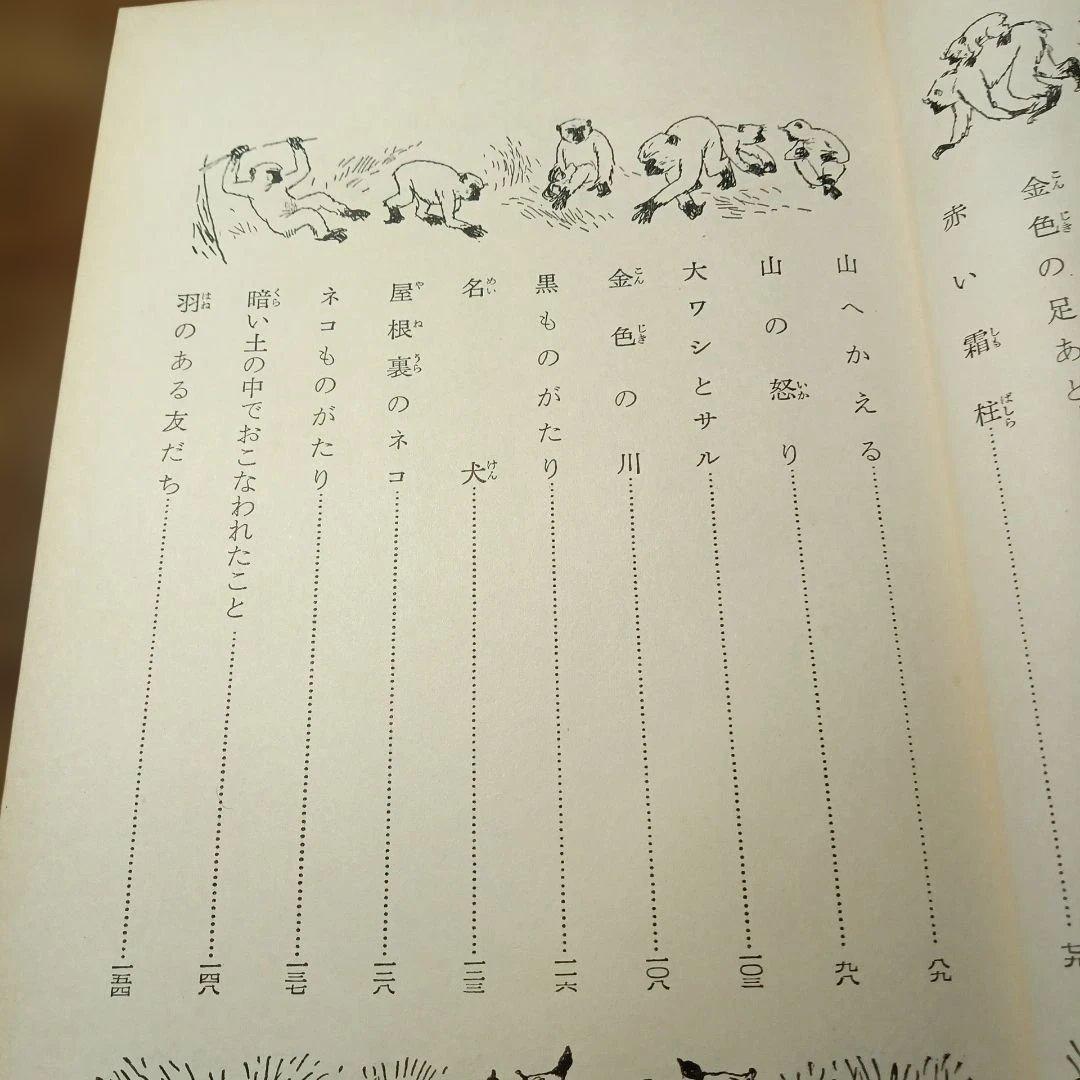 金色の足あと
七九
赤い霜柱
山へかえる 八九
山の怒り 九八
大ワシとサル 一〇三
金色の川 一〇八
黒ものがたり 一一六
名犬 一二三
屋根裏のネコ 一二八
ネコものがたり 一三七
暗い土の中でおこなわれたこと 一四八
羽のある友だち 一五四